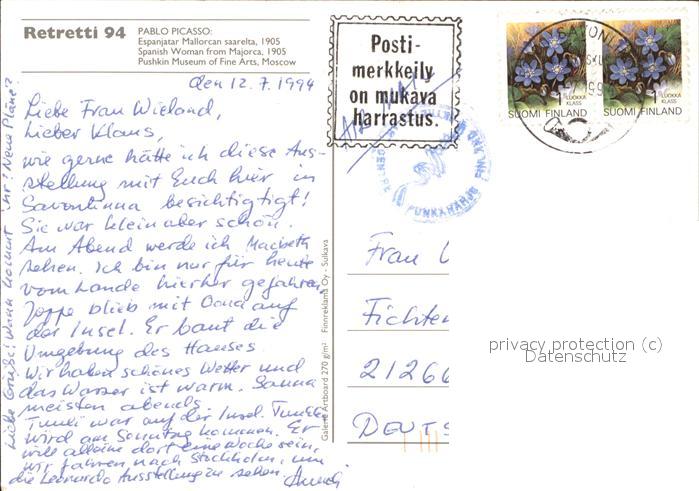 Retretti 94
PABLO PICASSO:
Espanjatar Mallorcan saarelta, 1905
Spanish Woman from Majorca, 1905
Pushkin Museum of Fine Arts, Moscow
Posti-
merkkeily
on mukava
harrastus.
1 LUOKKA
KLASS
SUOMI FINLAND
1 LUOKKA
KLASS
SUOMI FINLAND
PUNKAHARJU FINLAND
den 12.7.1994
Liebe Frau Wieland,
Lieber Klaus,
wie gerne hätte ich diese Aus-
stellung mit Euch hier in
Savonlinna besichtigtigt!
Sie war klein aber schön.
Am Abend werde ich Macbeth
sehen. Ich bin nur für heute
vom Lande hierher gefahren.
Joppe blieb mit auf
der Insel. Er baut die
Umgebung des Hauses
Wir haben schönes Wetter und
das Wasser ist warm. Sauna
meisten abends
war auf der Insel.
wird am Sonntag kommen. Er
will alleine dort eine Woche sein,
wir fahren nach Stockholm, um
die Leonardo Ausstellung zu sehen.
Liebe Grüße! Wann kommt ihr? Neue Pläne?
Galerie Artboard 270 g/m² Finnreklama Oy - Sulkava
Frau
Fichten
2126
DEUTS
privacy protection (c)
Datenschutz